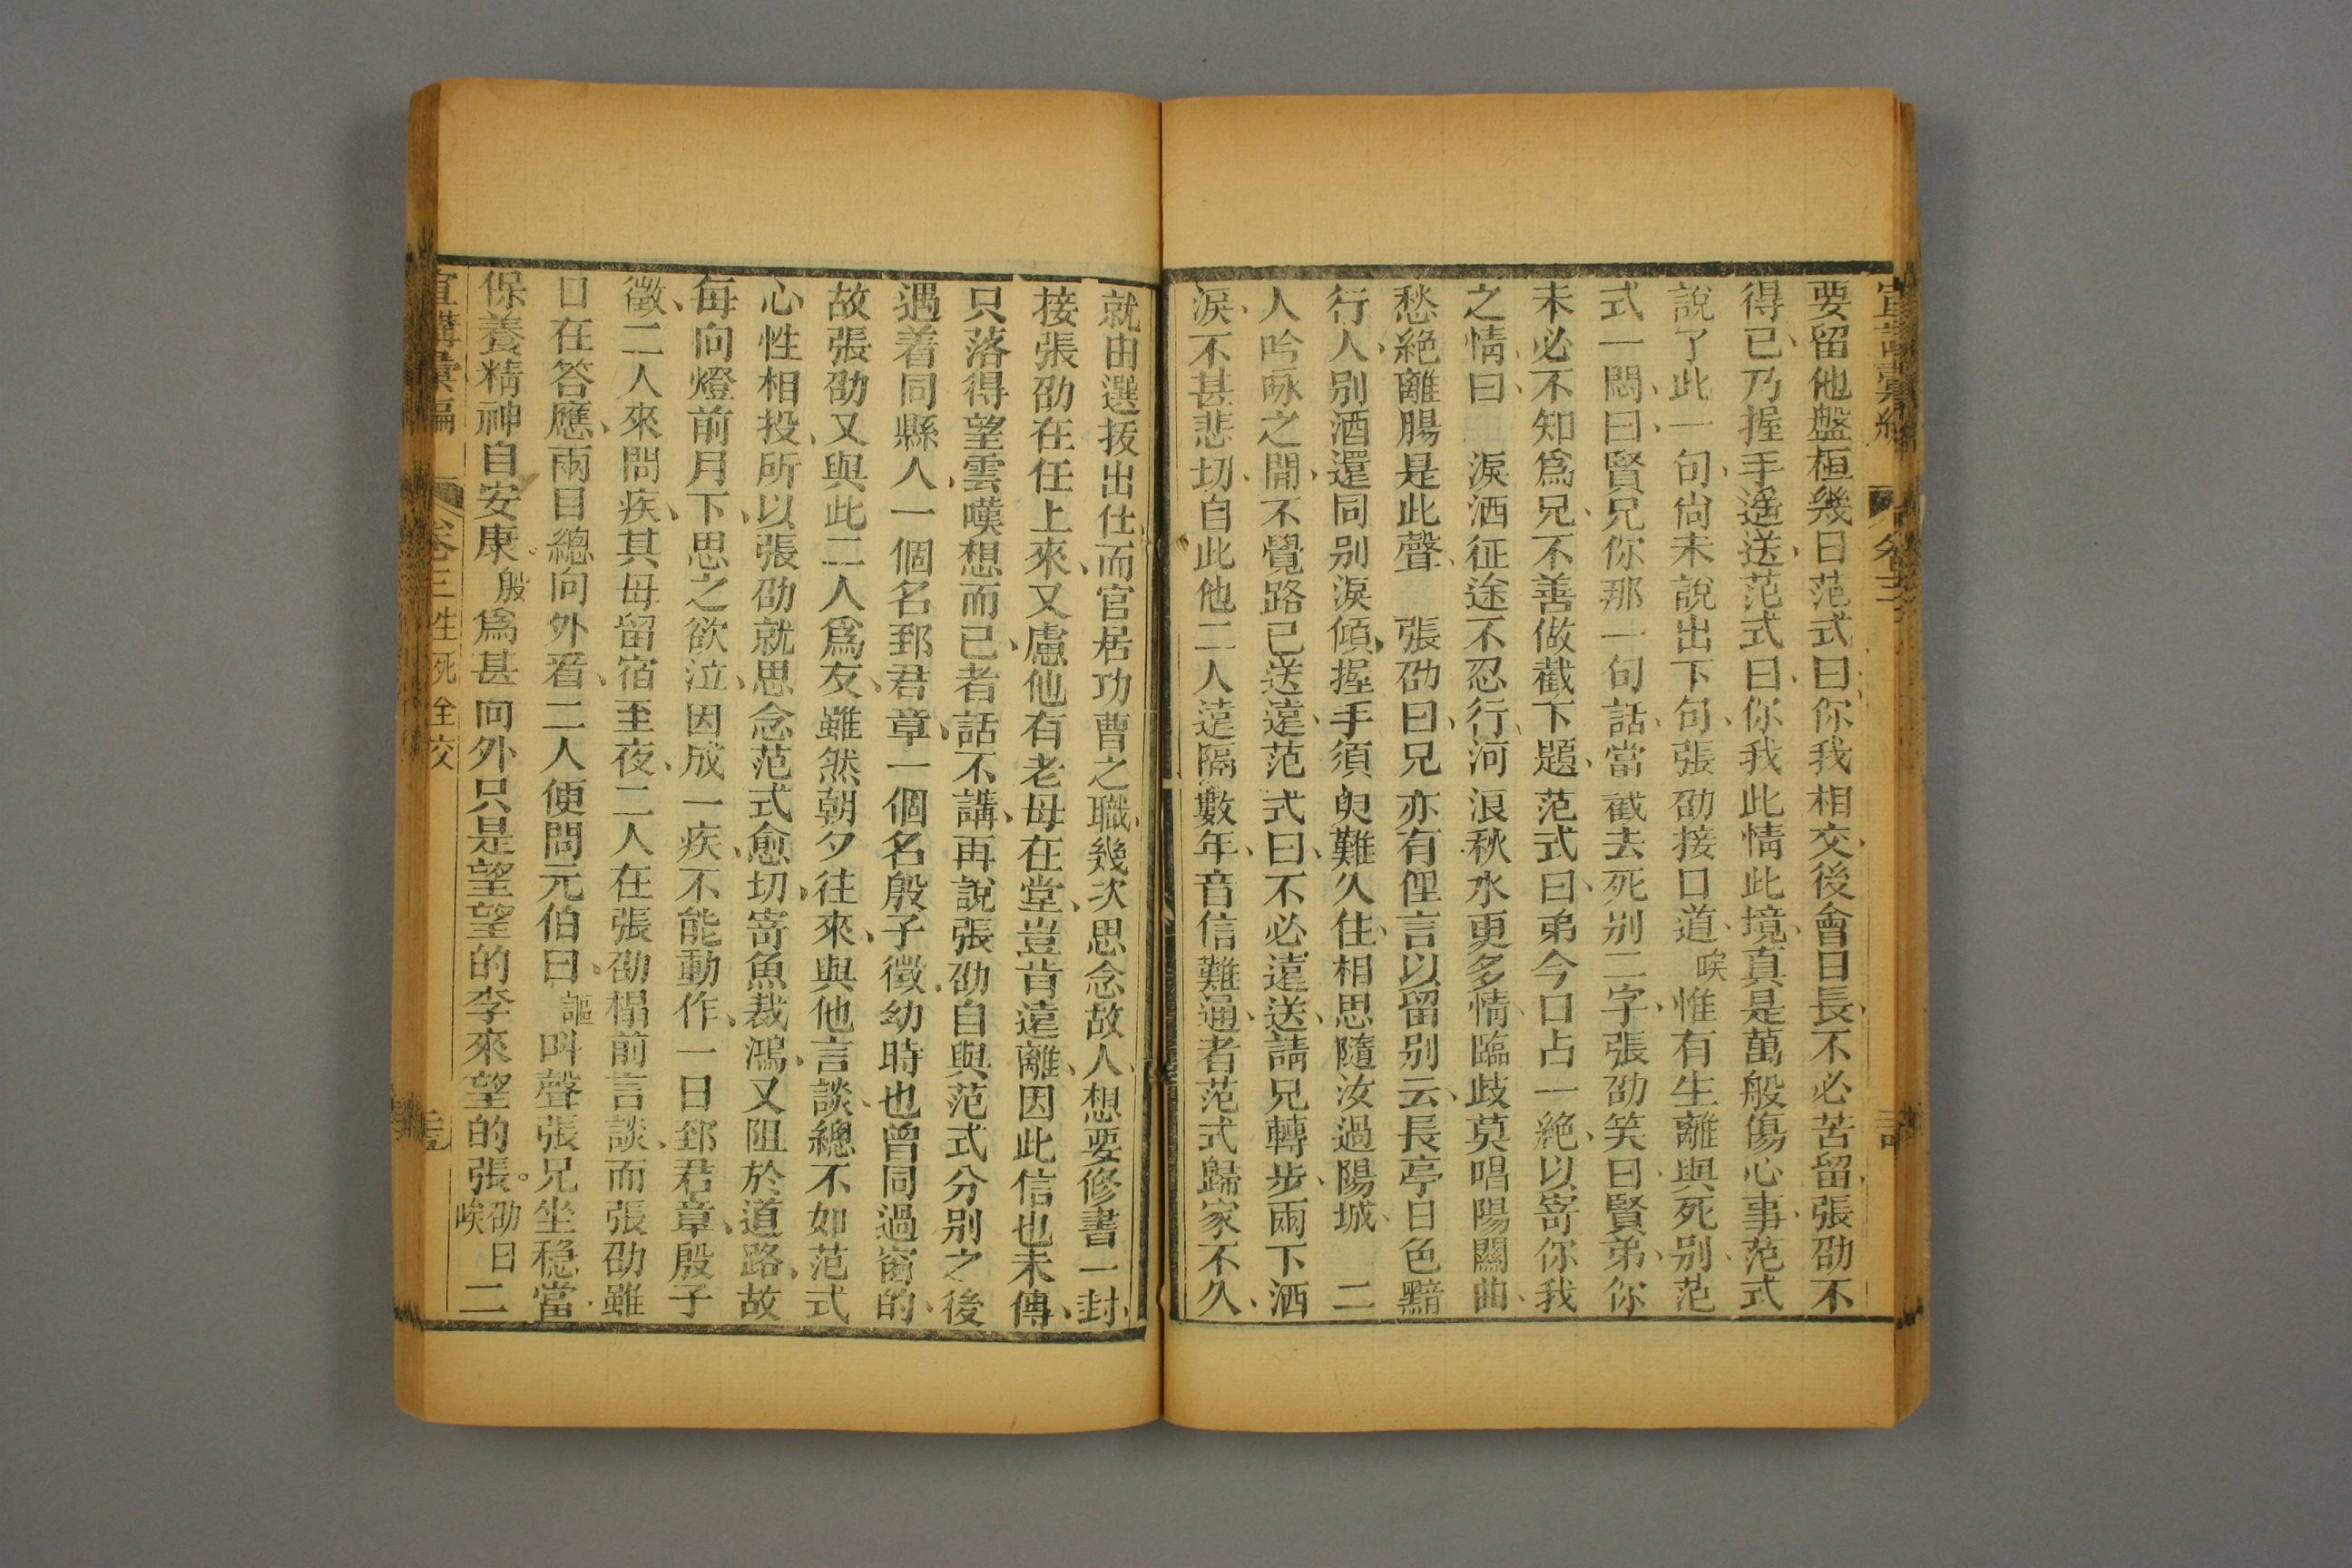 要留他盤桓幾日范式曰你我相交後會日長不必苦留張劭不
得已乃握手遙送范式曰你我此情此境真是萬般傷心事范式
說了此一句尚未說出下句張劭接口道唉惟有生離與死别范
式一悶曰賢兄你那一句話當截去死别二字張劭笑曰賢弟你
未必不知爲兄不善做截下題范式曰弟今口占一絶以寄你我
之情曰 淚洒征途不忍行河浪秋水更多情臨歧莫唱陽關曲
愁絶離腸是此聲 張劭曰兄亦有俚言以留别云長亭日色黯
行人别酒還同别淚傾握手須臾難久住相思隨汝過陽城 二
人吟詠之間不覺路已送遠范式曰不必遠送請兄轉步兩下洒
淚不甚悲切自此他二人遠隔數年音信難通者范式歸家不久
就由選拔出仕而官居功曹之職幾次思念故人想要修書一封
接張劭在任上來又慮他有老母在堂豈肯遠離因此信也未傳
只落得望雲嘆想而已者話不講再說張劭自與范式分别之後
遇着同縣人一個名郅君章一個名殷子徵幼時也曾同過窗的
故張劭又與此二人爲友雖然朝夕往來與他言談總不如范式
心性相投所以張劭就思念范式愈切寄魚裁鴻又阻於道路故
每向燈前月下思之欲泣因成一疾不能動作一日郅君章殷子
徵二人來問疾其母留宿至夜二人在張劭榻前言談而張劭雖
口在答應兩目總向外看二人便問元伯曰謳叫聲張兄坐穩當
保養精神自安康殷爲甚向外只是望望的李來望的張劭曰唉二
宣講彙編 卷三 性死全交